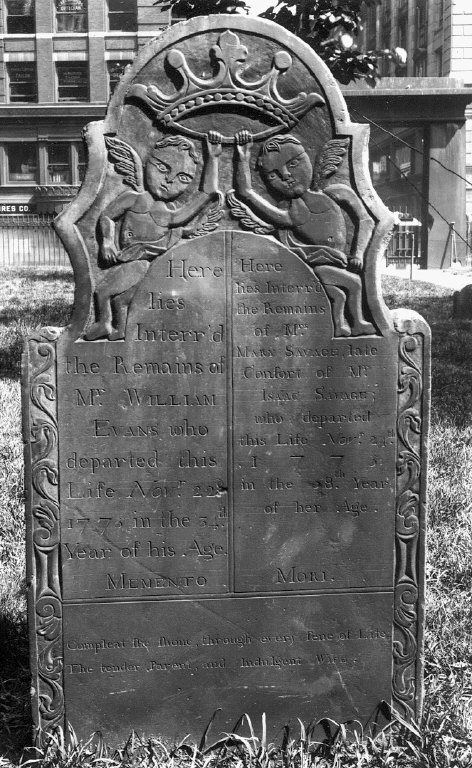 RES CO
Here
lies
Interr'd
the Remains of
Mr. WILLIAM
EVANS who
departed this
Life Novr. 22d.
1773, in the 34th.
Year of his Age.
Here
lies Interr'd
the Remains
of Mrs.
MARY SAVAGE, late
Confort of Mr.
ISAAC SAVAGE;
who departed
this Life Novr.
1773.
in the 28th Year
of her Age.
MEMENTO MORI.
Compleat the through every fene of Life,
The tender Parent, and Indulgent Wife.